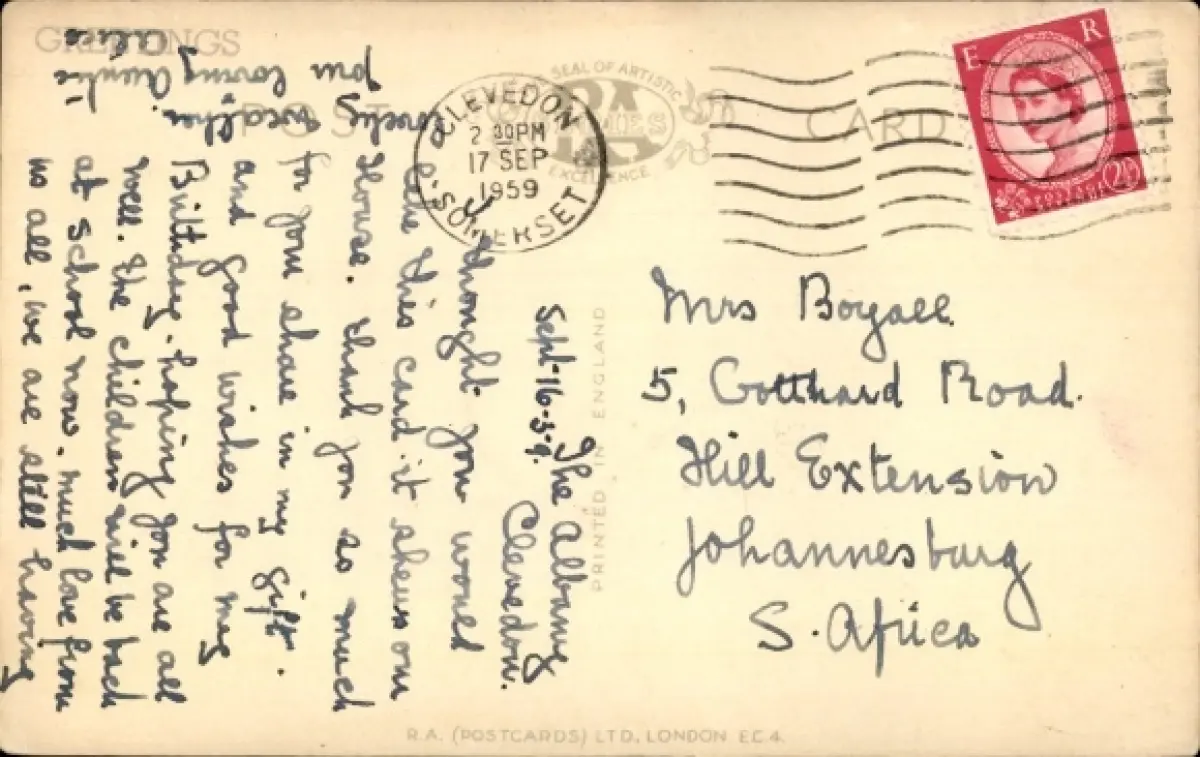 GREETINGS
POST CARD
SEAL OF ARTISTIC
RA
SERIES
EXCELLENCE
CLEVEDON
2 30PM
17 SEP
1959
SOMERSET
E R
2½
The Albany
Clevedon.
Sept-16-59.
I thought you would
like this card it shews our
House. thank you so much
for your share in my gift.
and good wishes for my
Birthday. hoping you are all
well. the children will be back
at school now. much love from
us all, we are still having
lovely weather.
your loving Auntie
Alice
Mrs Boyall
5, Gotthard Road.
Hill Extension
Johannesburg
S. Africa
PRINTED IN ENGLAND
R.A. (POSTCARDS) LTD, LONDON EC4.